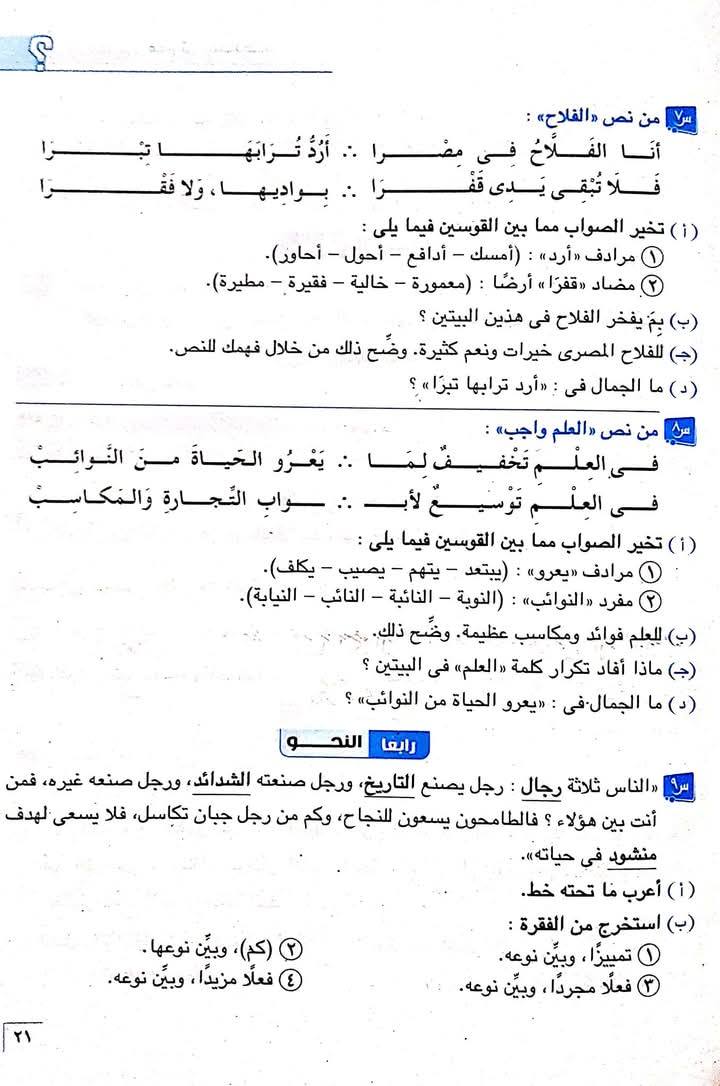 ؟
س٧ من نص «الفلاح» :
أنَــا الفَــلَّاحُ فِـى مِصْــرا ∴ أَرُدُّ تُـرَابَهَــا تِبْــرَا
فَـلَا تُبْقِـى يَـدِى قَفْـرَا ∴ بِـوادِيهـا، وَلا فَقْـرَا
(أ) تخير الصواب مما بين القوسين فيما يلى :
① مرادف «أرد» : (أمسك – أدافع – أحول – أحاور).
② مضاد «قفرًا» أرضًا : (معمورة – خالية – فقيرة – مطيرة).
(ب) بِمَ يفخر الفلاح فى هذين البيتين ؟
(جـ) للفلاح المصرى خيرات ونعم كثيرة. وضِّح ذلك من خلال فهمك للنص.
(د) ما الجمال فى : «أرد ترابها تبرًا» ؟
س٨ من نص «العلم واجب» :
فـى العِلْـمِ تَخْفيـفٌ لِمَـا ∴ يَعْـرُو الحَيـاةَ مـنَ النَّـوائِـبْ
فـى العِلْـمِ تَوْسِيـعٌ لأبـ ∴ ـوابِ التِّجـارةِ وَالـمَكَاسِـبْ
(أ) تخير الصواب مما بين القوسين فيما يلى :
① مرادف «يعرو» : (يبتعد – يتهم – يصيب – يكلف).
② مفرد «النوائب» : (النوبة – النائبة – النائب – النيابة).
(ب) للعلم فوائد ومكاسب عظيمة. وضِّح ذلك.
(جـ) ماذا أفاد تكرار كلمة «العلم» فى البيتين ؟
(د) ما الجمال فى : «يعرو الحياة من النوائب» ؟
رابعًا النحـــو
س٩ «الناس ثلاثة رجال : رجل يصنع التاريخ، ورجل صنعته الشدائد، ورجل صنعه غيره، فمن
أنت بين هؤلاء ؟ فالطامحون يسعون للنجاح، وكم من رجل جبان تكاسل، فلا يسعى لهدف
منشود فى حياته».
(أ) أعرب ما تحته خط.
(ب) استخرج من الفقرة :
① تمييزًا، وبيِّن نوعه. ② (كم)، وبيِّن نوعها.
③ فعلًا مجردًا، وبيِّن نوعه. ④ فعلًا مزيدًا، وبيِّن نوعه.
٢١